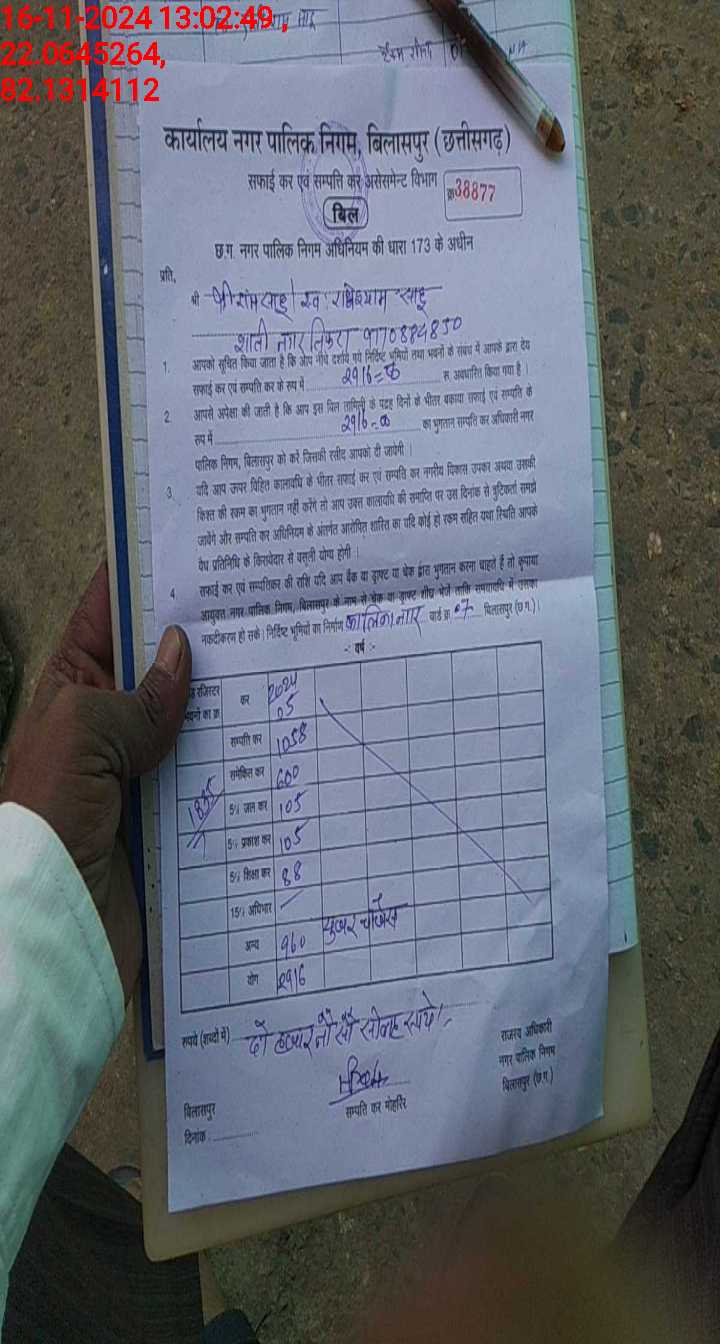 16-11-2024 13:02:49 ,
22.0645264,
82.1314112
कार्यालय नगर पालिक निगम, बिलासपुर (छत्तीसगढ़)
सफाई कर एवं सम्पत्ति कर असेसमेन्ट विभाग
क्र 38877
बिल
छ.ग. नगर पालिक निगम अधिनियम की धारा 173 के अधीन
प्रति,
श्री श्रीराम साहू स्व. राधेश्याम साहू
शांती नगर तिफरा
1. आपको सूचित किया जाता है कि ओप नीचे दर्शाये गये निर्दिष्ट भूमियों तथा भवनों के संबंध में आपके द्वारा देय
सफाई कर एवं सम्पत्ति कर के रूप में 2916=00 रू. अवधारित किया गया है ।
2. आपसे अपेक्षा की जाती है कि आप इस बिल तामिली के पंद्रह दिनों के भीतर बकाया सफाई एवं सम्पत्ति के
रूप में 2916=00 का भुगतान सम्पत्ति कर अधिकारी नगर
पालिक निगम, बिलासपुर को करें जिसकी रसीद आपको दी जायेगी ।
3. यदि आप ऊपर विहित कालावधि के भीतर सफाई कर एवं सम्पत्ति कर नगरीय विकास उपकर अथवा उसकी
किश्त की रकम का भुगतान नहीं करेंगे तो आप उक्त कालावधि की समाप्ति पर उस दिनांक से त्रुटिकर्ता समझे
जावेंगे और सम्पत्ति कर अधिनियम के अंतर्गत आरोपित शास्ति का यदि कोई हो रकम सहित यथा स्थिति आपके
वैध प्रतिनिधि के किरायेदार से वसूली योग्य होगी ।
4. सफाई कर एवं सम्पत्तिकर की राशि यदि आप बैंक या ड्राफ्ट या चेक द्वारा भुगतान करना चाहते हैं तो कृपया
आयुक्त नगर पालिक निगम, बिलासपुर के नाम से चेक या ड्राफ्ट शीघ्र भेजें ताकि समयावधि में उसका
नकदीकरण हो सके। निर्दिष्ट भूमियों का निर्माण कालिका नगर वार्ड क्र. 07 बिलासपुर (छ.ग.)।
-: वर्ष :-
रजिस्टर
भवनों का क्र.
कर 2024 05
सम्पत्ति कर 1058
समेकित कर 600
1835
5% जल कर 105
5% प्रकाश कर 105
5% शिक्षा कर 88
15% अधिभार
अन्य 960 युजर चार्जेस
योग 2916
रूपये (शब्दों में) दो हजार नौ सौ सोलह रूपये।
राजस्व अधिकारी
नगर पालिक निगम
बिलासपुर (छ.ग.)
बिलासपुर
सम्पत्ति कर मोहर्रिर
दिनांक